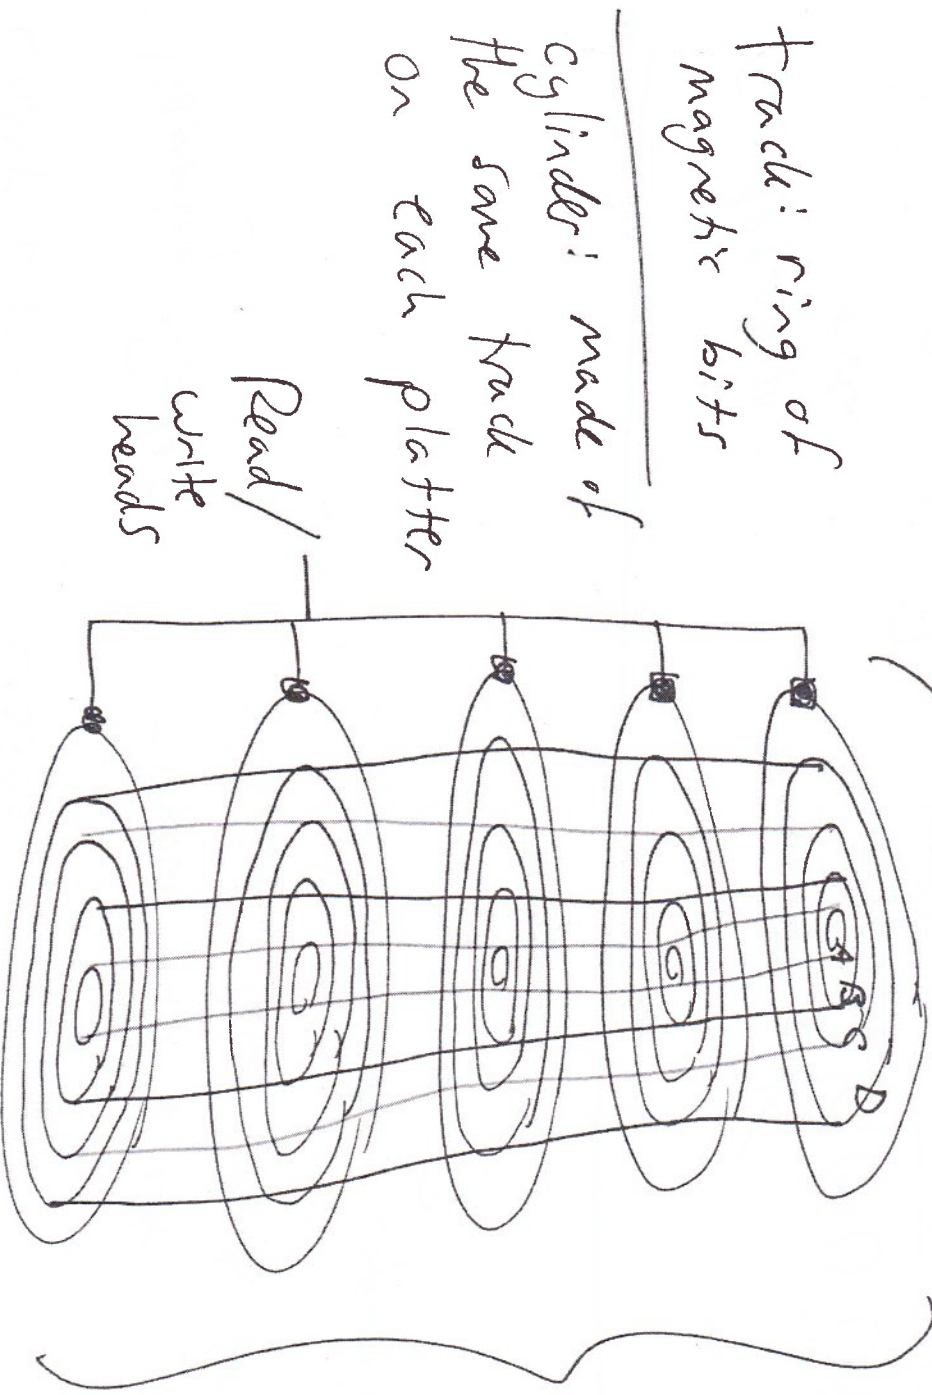 track: ring of
magnetic bits
cylinder: made of
the same track
on each platter
Read/
write
heads
A B C D